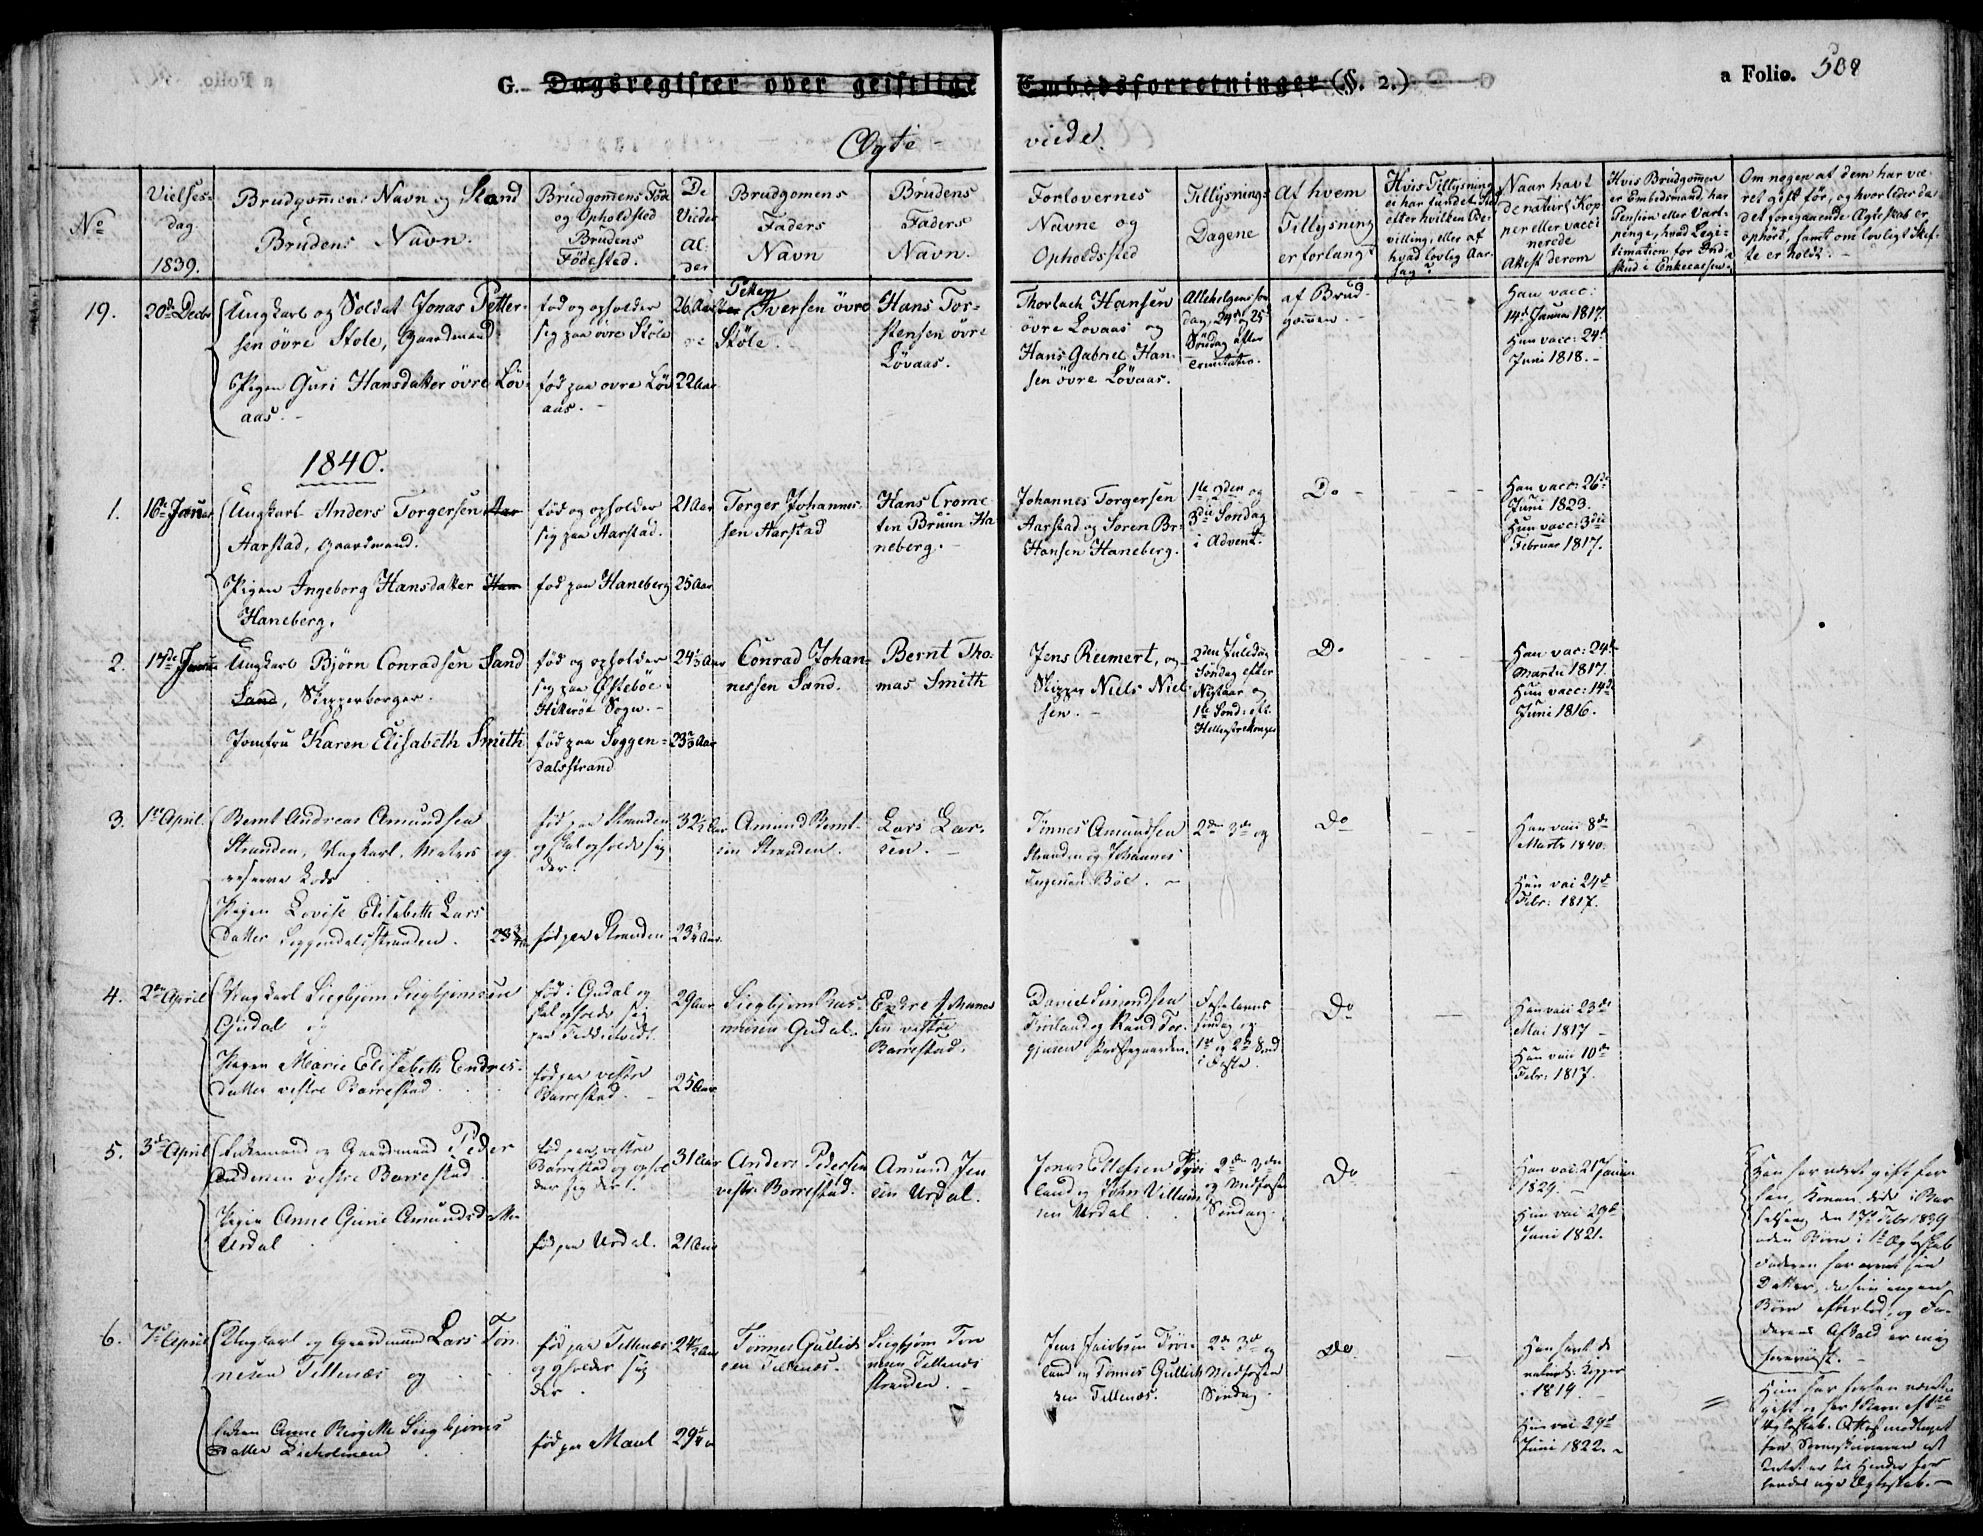 G. Dagsregister over geistlige Embedsforretninger (§. 2.) a Folio. 508
Ægte- viede.
No
Vielses-
dag
1839.
Brudgommens Navn og Stand
Brudens Navn.
Brudgommens Føde
og Opholdsted
Brudens
Fødested.
De
Viedes
Al-
der
Brudgomens
Faders
Navn
Brudens
Faders
Navn.
Forlovernes
Navne og
Opholdssted
Tillysnings
Dagene
Af hvem
Tillysning
er forlangt
Hvis Tillysning
ei har fundet Sted
efter hvilken Be-
villing, eller af
hvad lovlig Aar-
sag?
Naar havt
de naturl. Kop
per eller vacci
nerede
Attest derom
Hvis Brudgommen
er Embedsmand, har
Pension eller Vart-
penge, hvad Legi-
timation for Ind-
skud i Enkecassen
Om nogen af dem har væ-
ret gift før, og hvorledes da
det foregaaende Ægteskab er
ophørt, samt om lovligt Skif-
te er holdt.
19.
20de Decbr
Ungkarl og Soldat Jonas Petter-
sen övre Stole, Gaardmand
Pigen Guri Hansdatter övre Löv-
aas.
fød og opholder
sig paa övre Stöle
fød paa övre Löv
aas.
26 Aar
22 Aar
Petter
Iversen övre
Stöle.
Hans Tor-
stensen övre
Lövaas.
Thorlach Hansen
övre Lovaas og
Hans Gabriel Han-
sen övre Lövaas.
Allehelgenssøn
dag, 24de og 25
Söndag efter
Trinitatis.
af Brud-
gommen.
Han vacc:
14de Januar 1817.
Hun vacc: 24de
Juni 1818.
1840.
1.
16de Januar
Ungkarl Anders Torgersen Aar
Aarstad, Gaardmand.
Pigen Ingeborg Hansdatter Han
Haneberg.
fød og opholder
sig paa Aarstad.
fød paa Haneberg
21 Aar
25 Aar
Torger Johannes
sen Aarstad
Hans Crome-
tin Bruun Ha
neberg.
Johannes Torgersen
Aarstad og Soren Br
Hansen Haneberg.
1te, 2den og
3die Søndag
i Advent.
Do
Han vacc: 26de
Juni 1823.
Hun vacc: 3die
Februar 1817.
2.
17de Januar
Ungkarl Bjørn Conradsen Sand
Sand, Skipperborger.
Jomfru Karen Elisabeth Smith
fød og opholder
sig paa Østeböe
Hitteröe Sogn.
fød paa Soggen-
dalsstrand
24½ Aar
23⅔ Aar
Conrad Johan-
nessen Sand.
Bernt Tho-
mas Smith
Jens Reimert, og
Skipper Niels Niel-
sen.
2den Juledag
Søndag efter
Nytaar og
1te Sönd: eft.
Hellige tre Konger
Do
Han vac: 24de
Martii 1817.
Hun vacc: 14de
Juni 1816.
3.
1ste April.
Bernt Andreas Amundsen
Stranden, Ungkarl, Matros og
reserve Lods
Pigen Lovise Elisabeth Lars
Datter Soggendalsstranden.
fød paa Stranden
og skal opholde sig
der.
fød paa Stranden
32½ Aar
23¾ Aar
Amund Bernt-
sen Stranden.
Lars Lar-
sen.
Tönnes Amundsen
Stranden og Johannes
Böe.
2den 3de og
Do
Han vacc 8de
Marts 1840.
Hun vacc 24de
Febr: 1817.
4.
2den April
Ungkarl Siegbjorn Siegbjornsen
Gudal og
Pigen Marie Elisabeth Endres-
datter vestre Barrestad.
fød i Gudal og
skal opholde sig
paa
fød paa vestre
Barrestad.
29 Aar
25 Aar
Siegbjorn Ras-
musen Gudal.
Endre Johannes
sen vestre
Barrestad.
Daniel Simondsen
Frøiland og Raud Tor-
gjusen Præstegaarden.
Fastelavns
Søndag og
1ste og 2den Sønd
i Faste.
Do
Han vacc 23de
Mai 1817
Hun vacc 10de
Febr: 1817.
5.
3die April
Enkemand og Gaardmand Peder
Andersen vestre Barrestad.
Pigen Anne Gurie Amundsdatter
Urdal
fød paa vestre
Barrestad og ophol
der sig der.
fød paa Urdal.
31 Aar
21 Aar
Anders Pedersen
vestre Barrestad.
Amund Jen
sen Urdal.
Jonas Ellefsen Frøi
land og John Villum
sen Urdal
2den 3die
og Midfaste
Søndag.
Do
Han vac: 21 Januar
1829.
Hun vac: 29de
Juni 1821.
Han har været gift før
hen, Konen døde i Bar
selseng den 17de Febr 1839
uden Børn i 1te Ægteskab
Faderen har arvet sin
Datter, da hun ingen
Børn efterlod, og Fa-
derens Afkald er mig
forevist.
6.
7de April
Ungkarl og Gaardmand Lars Tön-
nesen Tellenæs og
Enken Anne Birgitte Siegbjørns
Datter
fød paa Tellenæs
og opholder sig
der.
fød paa Mael
24½ Aar
29½ Aar
Tønnes Gullich
sen Tellenæs.
Siegbjørn Tön
nesen Tellenæs
stranden.
Jens Jacobsen Frøi-
land og Tønnes Gullich
sen Tellenæs.
2den 3de og
Midfaste
Søndag.
Do.
Han havt de
naturl: Kopper
i 1819.
Hun vac: 29de
Juni 1822.
Hun har forhen været
gift og har Børn af 1te
Ægteskab. Attest modtaget
fra Sorenskriveren at
Intet er til Hinder for
hendes nye Ægteskab.